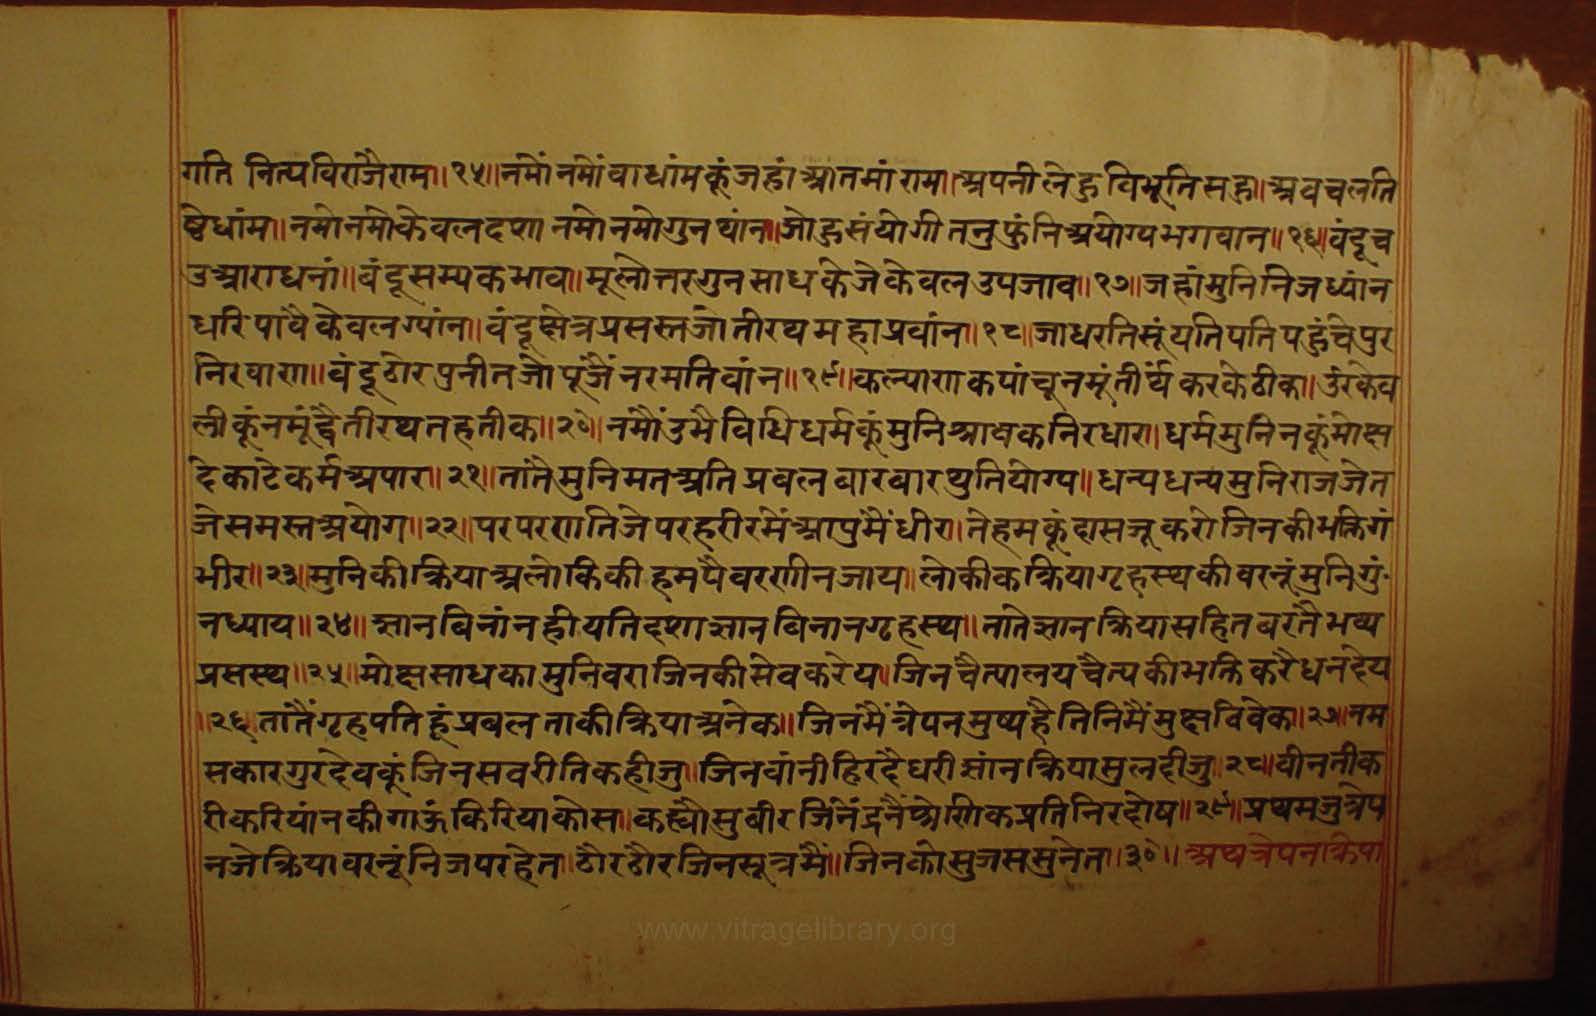 गति नित्यविराजैराम॥१५॥नमोंनमोंवाधांमकूंजहांआतमांराम॥अपनीलेहुविभूतिसहु॥अवचलति
ष्टेधांम॥नमोनमोकेवलदशा नमोनमोगुनथांन॥जोहुसंयोगीतनुफुंनिअयोग्यभगवान॥१६॥वंदूच
उआराधनां॥वंदूसम्यकभाव॥मूलोत्तरगुनसाधकेजेकेवलउपजाव॥१७॥जहांमुनिनिजध्यांन
धरिपावैकेवलग्यांन॥वंदूक्षेत्रप्रसस्तजोतीरथमहाप्रवांन॥१८॥जाधरतिसूंयतिपतिपहुंचेपुर
निरवारण॥वंदूठोरपुनीतजोपूंजैंनरमतिवांन॥१९॥कल्याणकपांचूनमूंतीर्थंकरकेठीक॥उंरकेव
लीकूंनमूंह्वैतीरथतहतीक॥२०॥नमौंउभैविधिधर्मकूंमुनिश्रावकनिरधार॥धर्ममुनिनकूंमोक्ष
देकाटेकर्मअपार॥२१॥तांतैमुनिमतअतिप्रबलबारबारथुतियोग्य॥धन्यधन्यमुनिराजजेत
जेसमस्तअयोग॥२२॥परपरणतिजेपरहरीरमेंआपुमैंधीर॥तेहमकूंदासजूकरोजिनकीभक्तिगं
भीर॥२३॥मुनिकीक्रियाअलोकिकीहमपैवरणीनजाय॥लोकीकक्रियागृहस्थकीवरनूंमुनिगुं
नध्याय॥२४॥ज्ञानविनांनहीयतिदशाज्ञानविनानगृहस्थ॥तातेज्ञानक्रियासहितबरतैभव्य
प्रसस्थ॥२५॥मोक्षसाधकामुनिवराजिनकीसेवकरेय॥जिनचैत्यालयचैत्यकीभक्तिकरैधनदेय
॥२६॥तातैंगृहपतिहूंप्रबलताकीक्रियाअनेक॥जिनमैंत्रेपनमुष्यहैतिनिमैंमुक्षविवेक॥२७॥नम
सकारगुरदेवकूंजिनसवरीतिकहीजु॥जिनवांनीहिरदैधरीज्ञांनक्रियासुलहीजु॥२८॥वीनतीक
रीकरियांनकीगाऊंकिरियाकोस॥कह्यौसुबीरजिनेंद्रनैंश्रेणीकप्रतिनिरदोष॥२९॥प्रथमजुत्रेप
नजेक्रियावरनूंनिजपरहेत॥ठौरठौरजिनसूत्रमैं॥जिनकोसुजससुनेत॥३०॥अथत्रेपनक्रिया
www.vitragelibrary.org